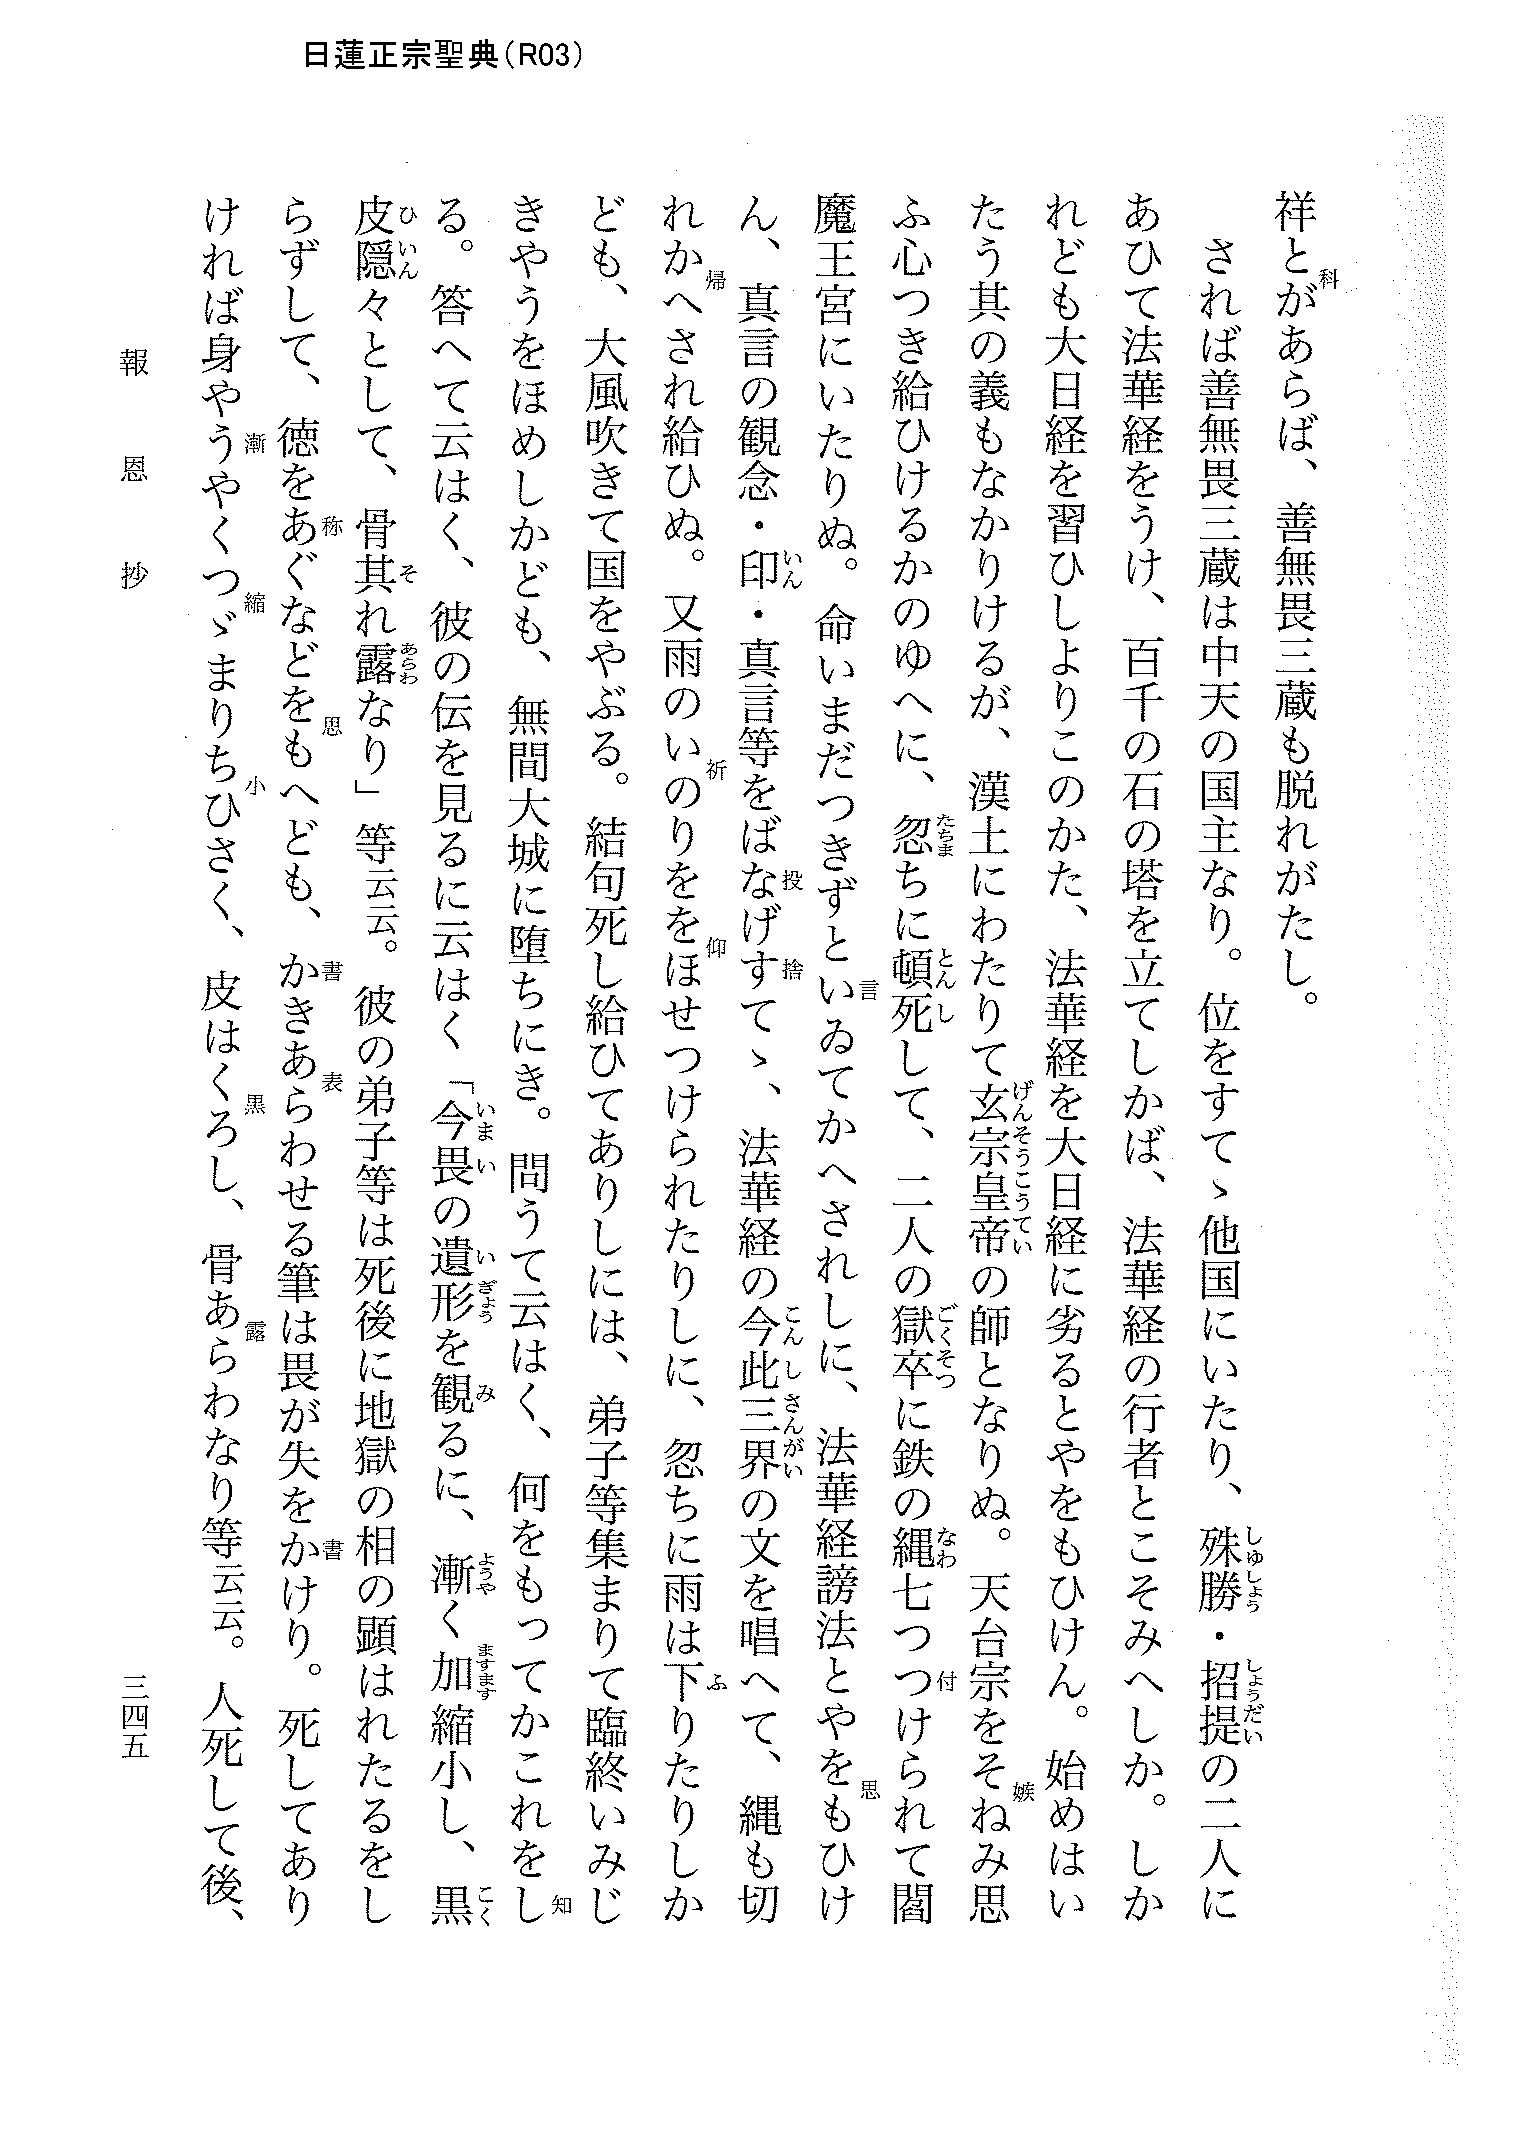 日蓮正宗聖典（R03）
祥とがあらば、善無畏三蔵も脱れがたし。
されば善無畏三蔵は中天の国主なり。位をすてゝ他国にいたり、殊勝・招提の二人に
あひて法華経をうけ、百千の石の塔を立てしかば、法華経の行者とこそみへしか。しか
れども大日経を習ひしよりこのかた、法華経を大日経に劣るとやをもひけん。始めはい
たう其の義もなかりけるが、漢土にわたりて玄宗皇帝の師となりぬ。天台宗をそねみ思
ふ心つき給ひけるかのゆへに、忽ちに頓死して、二人の獄卒に鉄の縄七つつけられて閻
魔王宮にいたりぬ。命いまだつきずといゐてかへされしに、法華経謗法とやをもひけ
ん、真言の観念・印・真言等をばなげすてゝ、法華経の今此三界の文を唱へて、縄も切
れかへされ給ひぬ。又雨のいのりををほせつけられたりしに、忽ちに雨は下りたりしか
ども、大風吹きて国をやぶる。結句死し給ひてありしには、弟子等集まりて臨終いみじ
きやうをほめしかども、無間大城に堕ちにき。問うて云はく、何をもってかこれをし
る。答へて云はく、彼の伝を見るに云はく「今畏の遺形を観るに、漸く加縮小し、黒
皮隠々として、骨其れ露なり」等云云。彼の弟子等は死後に地獄の相の顕はれたるをし
らずして、徳をあぐなどをもへども、かきあらわせる筆は畏が失をかけり。死してあり
ければ身やうやくつゞまりちひさく、皮はくろし、骨あらわなり等云云。人死して後、
報恩抄
三四五